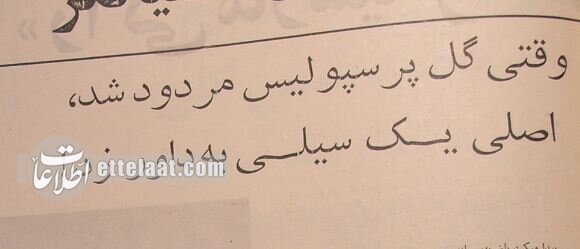 وقتی گل پرسپولیس مردود شد،
اصلی یک سیلی به داور زد
اطلاعات ettelaat.com